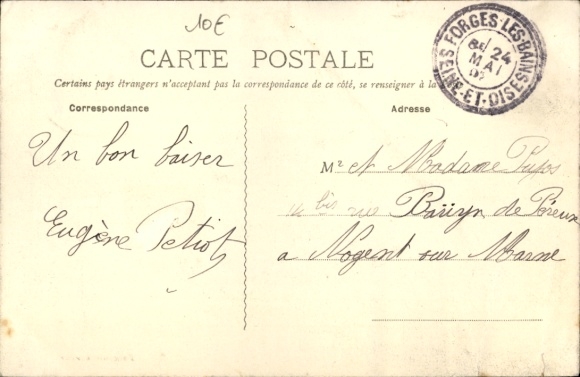 10€
CARTE POSTALE
Certains pays étrangers n'acceptant pas la correspondance de ce côté, se renseigner à la
Correspondance
Adresse
FORGES-LES-BAINS
24
MAI
SEINE-ET-OISE
Un bon baiser
Eugène Petiot
Mr et Madame
bis rue de
a Nogent sur Marne